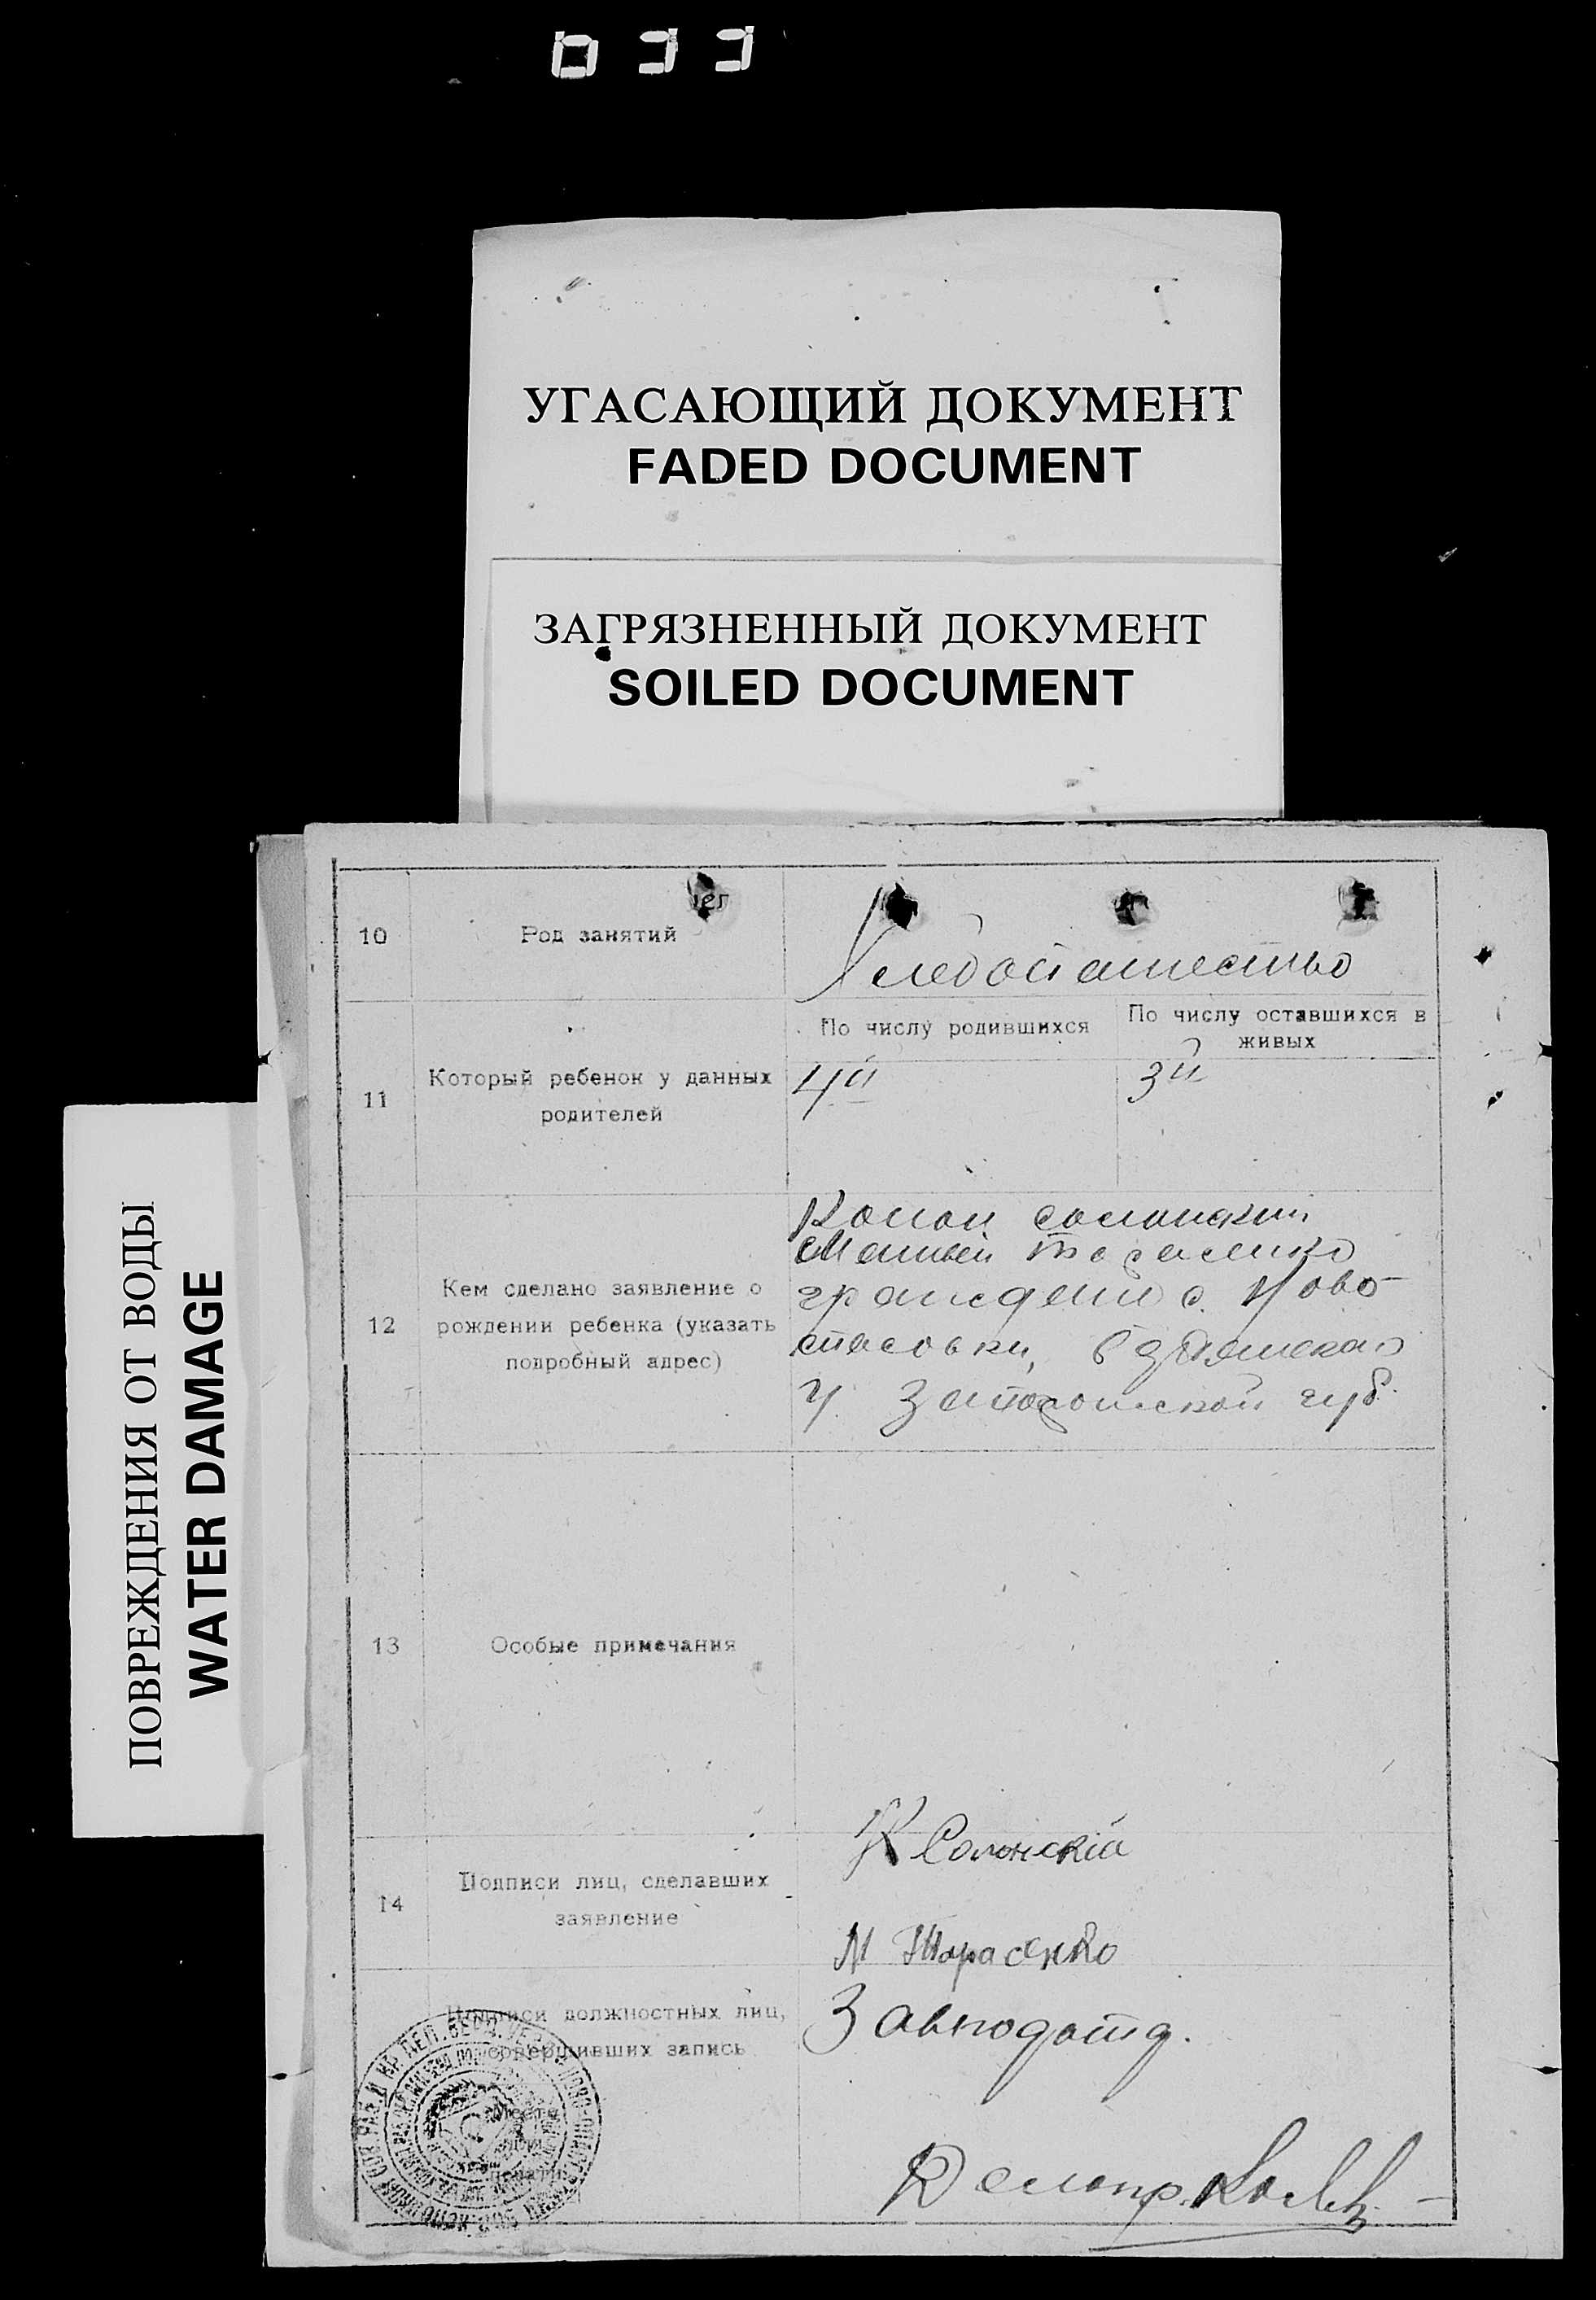 033
УГАСАЮЩИЙ ДОКУМЕНТ
FADED DOCUMENT
ЗАГРЯЗНЕННЫЙ ДОКУМЕНТ
SOILED DOCUMENT
ПОВРЕЖДЕНИЯ ОТ ВОДЫ
WATER DAMAGE
10
Род занятий
Хлебопашество
По числу родившихся
По числу оставшихся в
живых
11
Который ребенок у данных
родителей
4й
3й
12
Кем сделано заявление о
рождении ребенка (указать
подробный адрес)
Конон Солонский
Матвей Тарасенко
граждани с. Ново-
спасовки, Бердянского
у. Запорожской губ.
13
Особые примечания
14
Подписи лиц, сделавших
заявление
К Солонскій
М Тарасенко
Подписи должностных лиц,
совершивших запись
Завподотд.
Место
для
печати
Делопр.